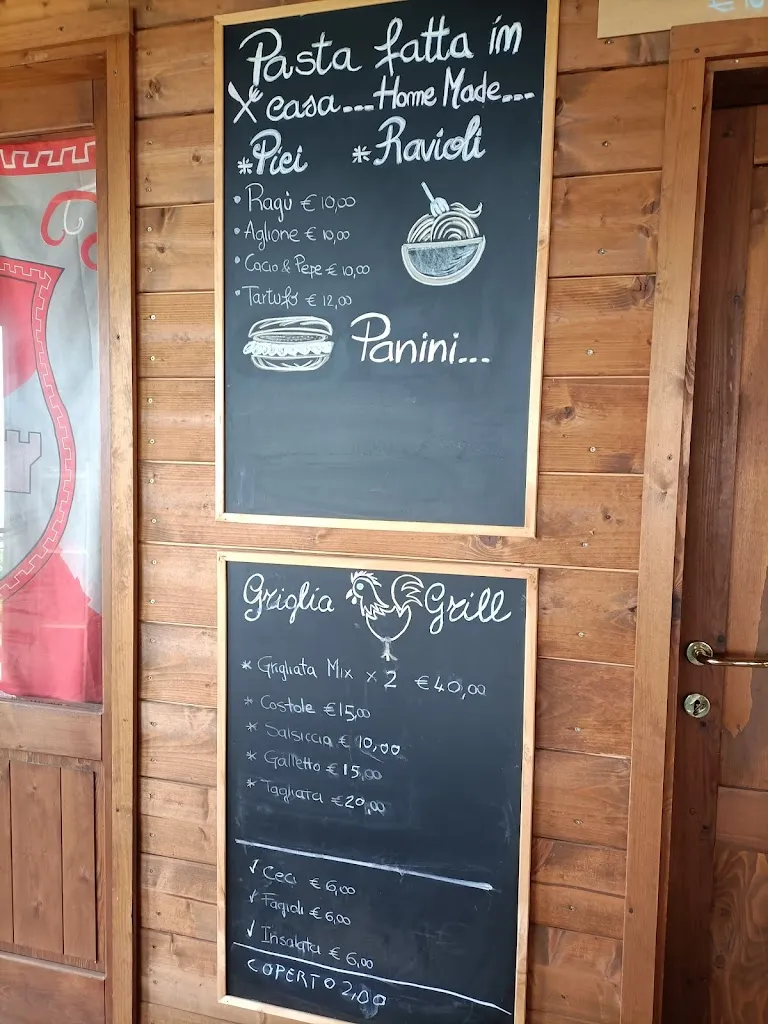 Pasta fatta in
casa...Home Made...
*Pici *Ravioli
• Ragù € 10,00
• Aglione € 10,00
• Cacio & Pepe € 10,00
• Tartufo € 12,00
Panini...
Griglia Grill
* Grigliata Mix x 2 € 40,00
* Costole € 15,00
* Salsiccia € 10,00
* Galletto € 15,00
* Tagliata € 20,00
✓ Ceci € 6,00
✓ Fagioli € 6,00
✓ Insalata € 6,00
COPERTO 2,00